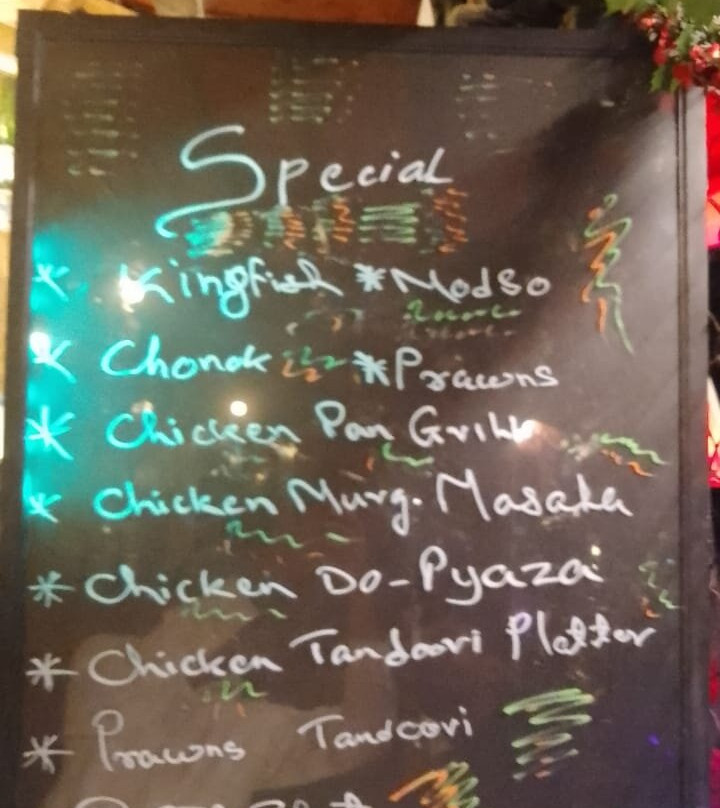 Special
* Kingfish * Modso
* Chonok * Prawns
* Chicken Pan Grill
* Chicken Murg. Masala
* Chicken Do-Pyaza
* Chicken Tandoori Platter
* Prawns Tandoori